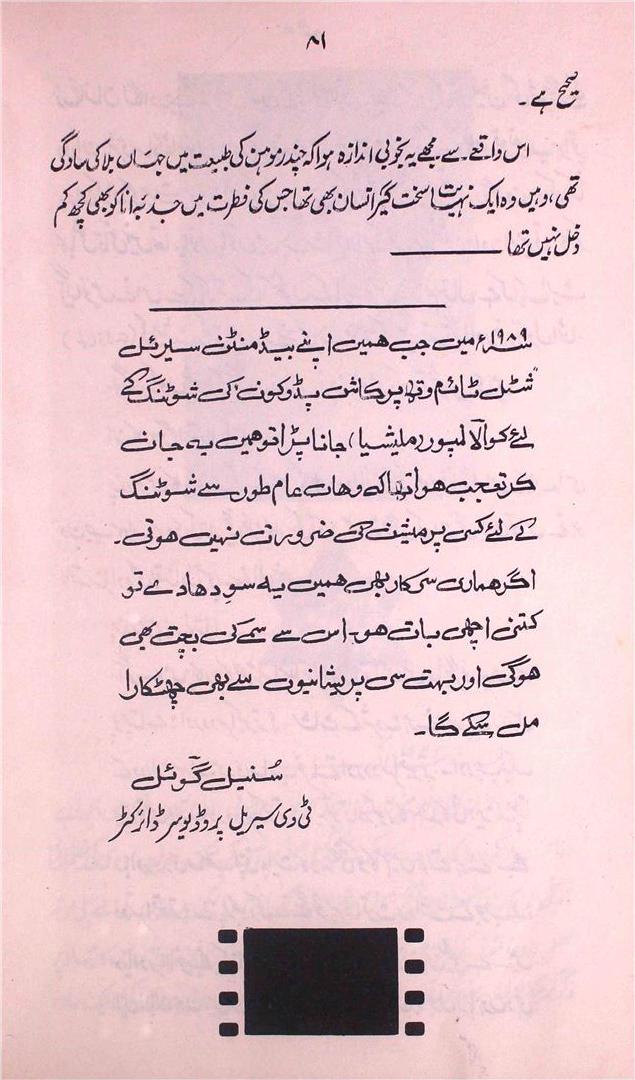 ۸۱
صحیح ہے۔
اس واقعے سے مجھے یہ بخوبی اندازہ ہوا کہ چندر موہن کی طبیعت میں جہاں بلا کی سادگی
تھی، وہیں وہ ایک نہایت سخت گیر انسان بھی تھا جس کی فطرت میں جذبۂ انا کو بھی کچھ کم
دخل نہیں تھا
۱۹۸۹ء میں جب ہمیں اپنے بیڈمنٹن سیریل
"شٹل ٹائم وتھ پرکاش پڈوکون" کی شوٹنگ کے
لئے کوالالمپور (ملیشیا) جانا پڑا تو ہمیں یہ جان
کر تعجب ہوا تھا کہ وہاں عام طور سے شوٹنگ
کے لئے کسی پرمیشن کی ضرورت نہیں ہوتی۔
اگر ہماری سرکار بھی ہمیں یہ سودھا دے تو
کتنی اچھی بات ہو۔ اس سے سمے کی بچت بھی
ہوگی اور بہت سی پریشانیوں سے بھی چھٹکارا
مل سکے گا۔
سنیل گوئل
ٹی وی سیریل پروڈیوسر ڈائرکٹر